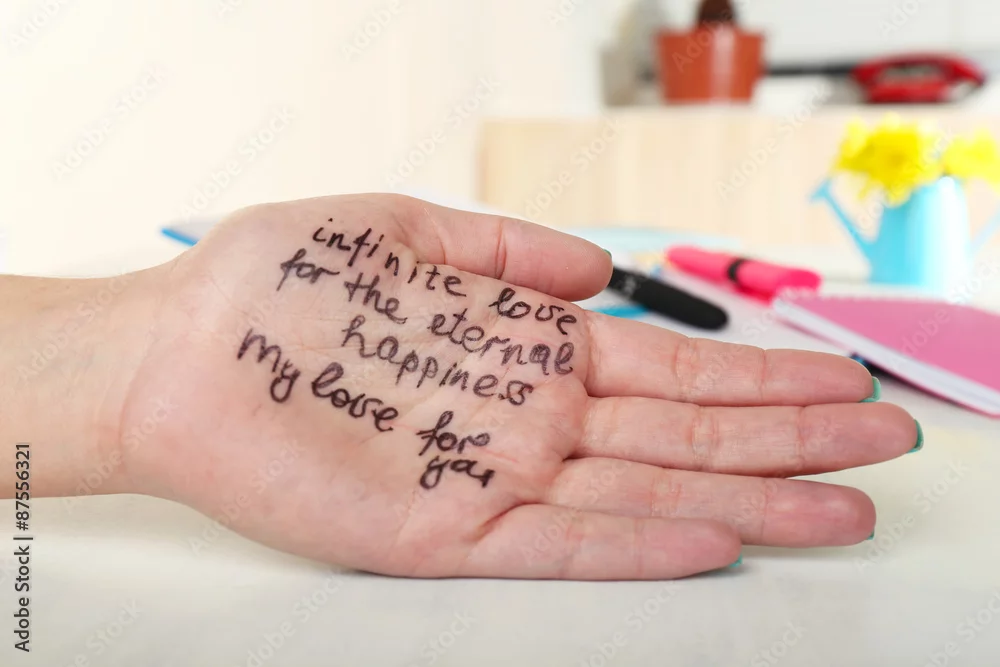 infinite love
for the eternal
happiness
My love for
you
Adobe Stock | #87556321